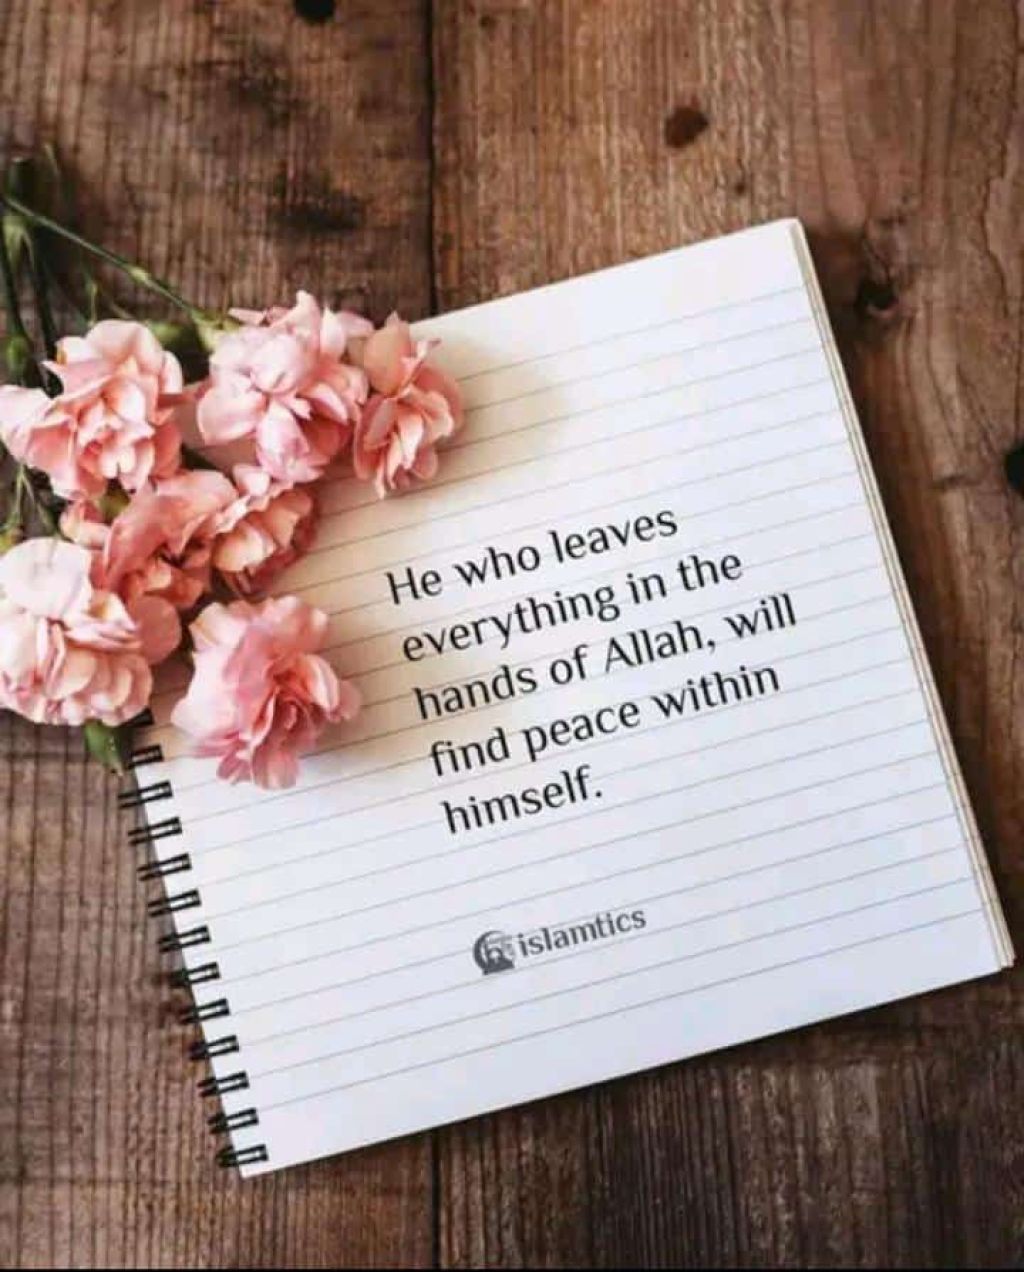 He who leaves
everything in the
hands of Allah, will
find peace within
himself.
islamtics